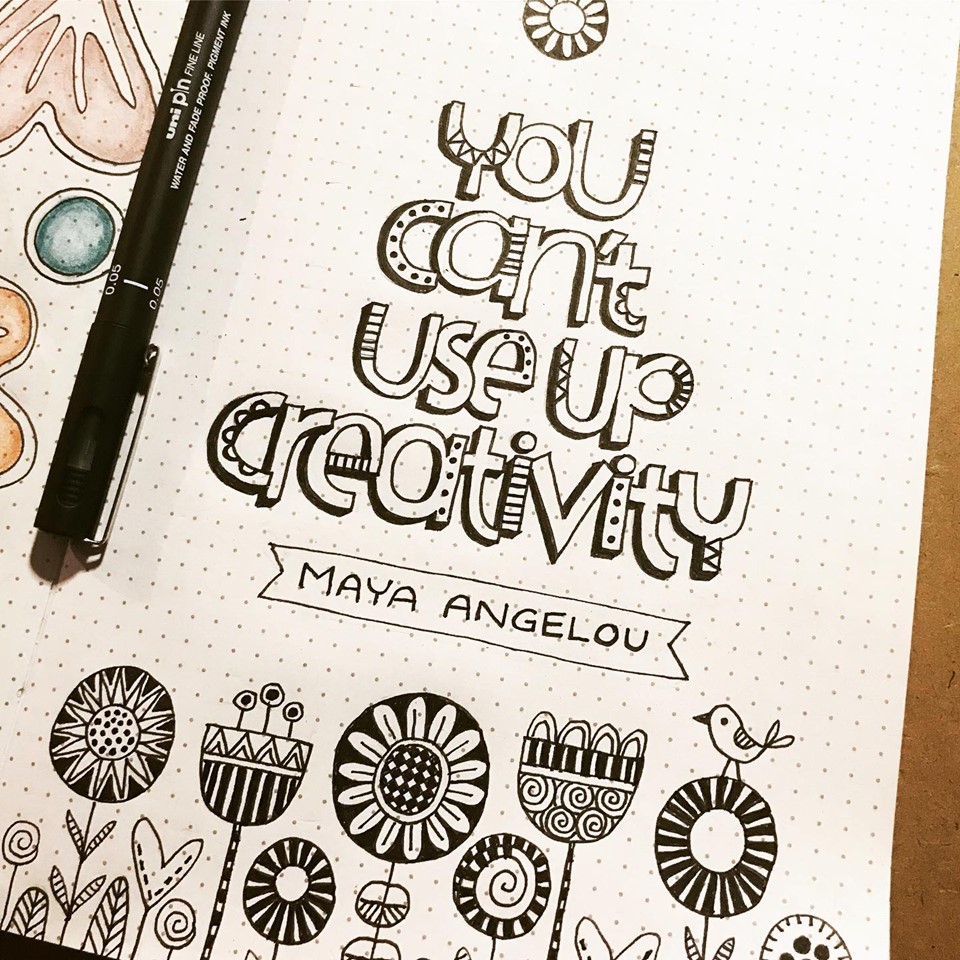 uni pin FINE LINE
WATER AND FADE PROOF, PIGMENT INK
0.05
0.05
YOU
can't
use up
creativity
MAYA ANGELOU